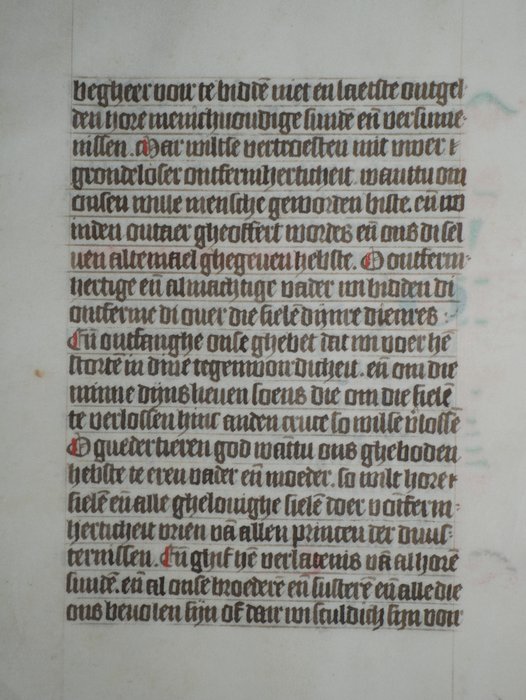 begheer voir te biddē niet en laetste ontgel-
den hore menichvoudige sunde eñ versume-
nissen. Mar wiltse vertroesten mit uwer
grondeloser ontfermherticheit. wanttu om
onsen wille mensche geworden biste. eñ wo
inden outaer gheoffert wordes eñ ons di sel
ven altemael ghegeven hebste. O ontferm-
hertige eñ almachtige vader wi bidden di
ontferme di over die siele dijnre dienres
Eñ ontfanghe onse ghebet dat wi voer hē
storten in dine tegenwoirdicheit. eñ om die
minne dijns lieven soens die om die sielē
te verlossen hinc anden cruce so wilse v̄lossē
O guedertieren god wanttu ons gheboden
hebste te eren vader eñ moeder. so wilt hore
sielē eñ alle ghelovighe sielē doer d ontferm-
herticheit vrien vā allen princen der duus-
ternissen. Eñ ghif hē verlatenis vā al horē
sunden. eñ al onse broederē eñ susterē eñ alle die
ons bevolen sijn of dair wi sculdich sijn voir